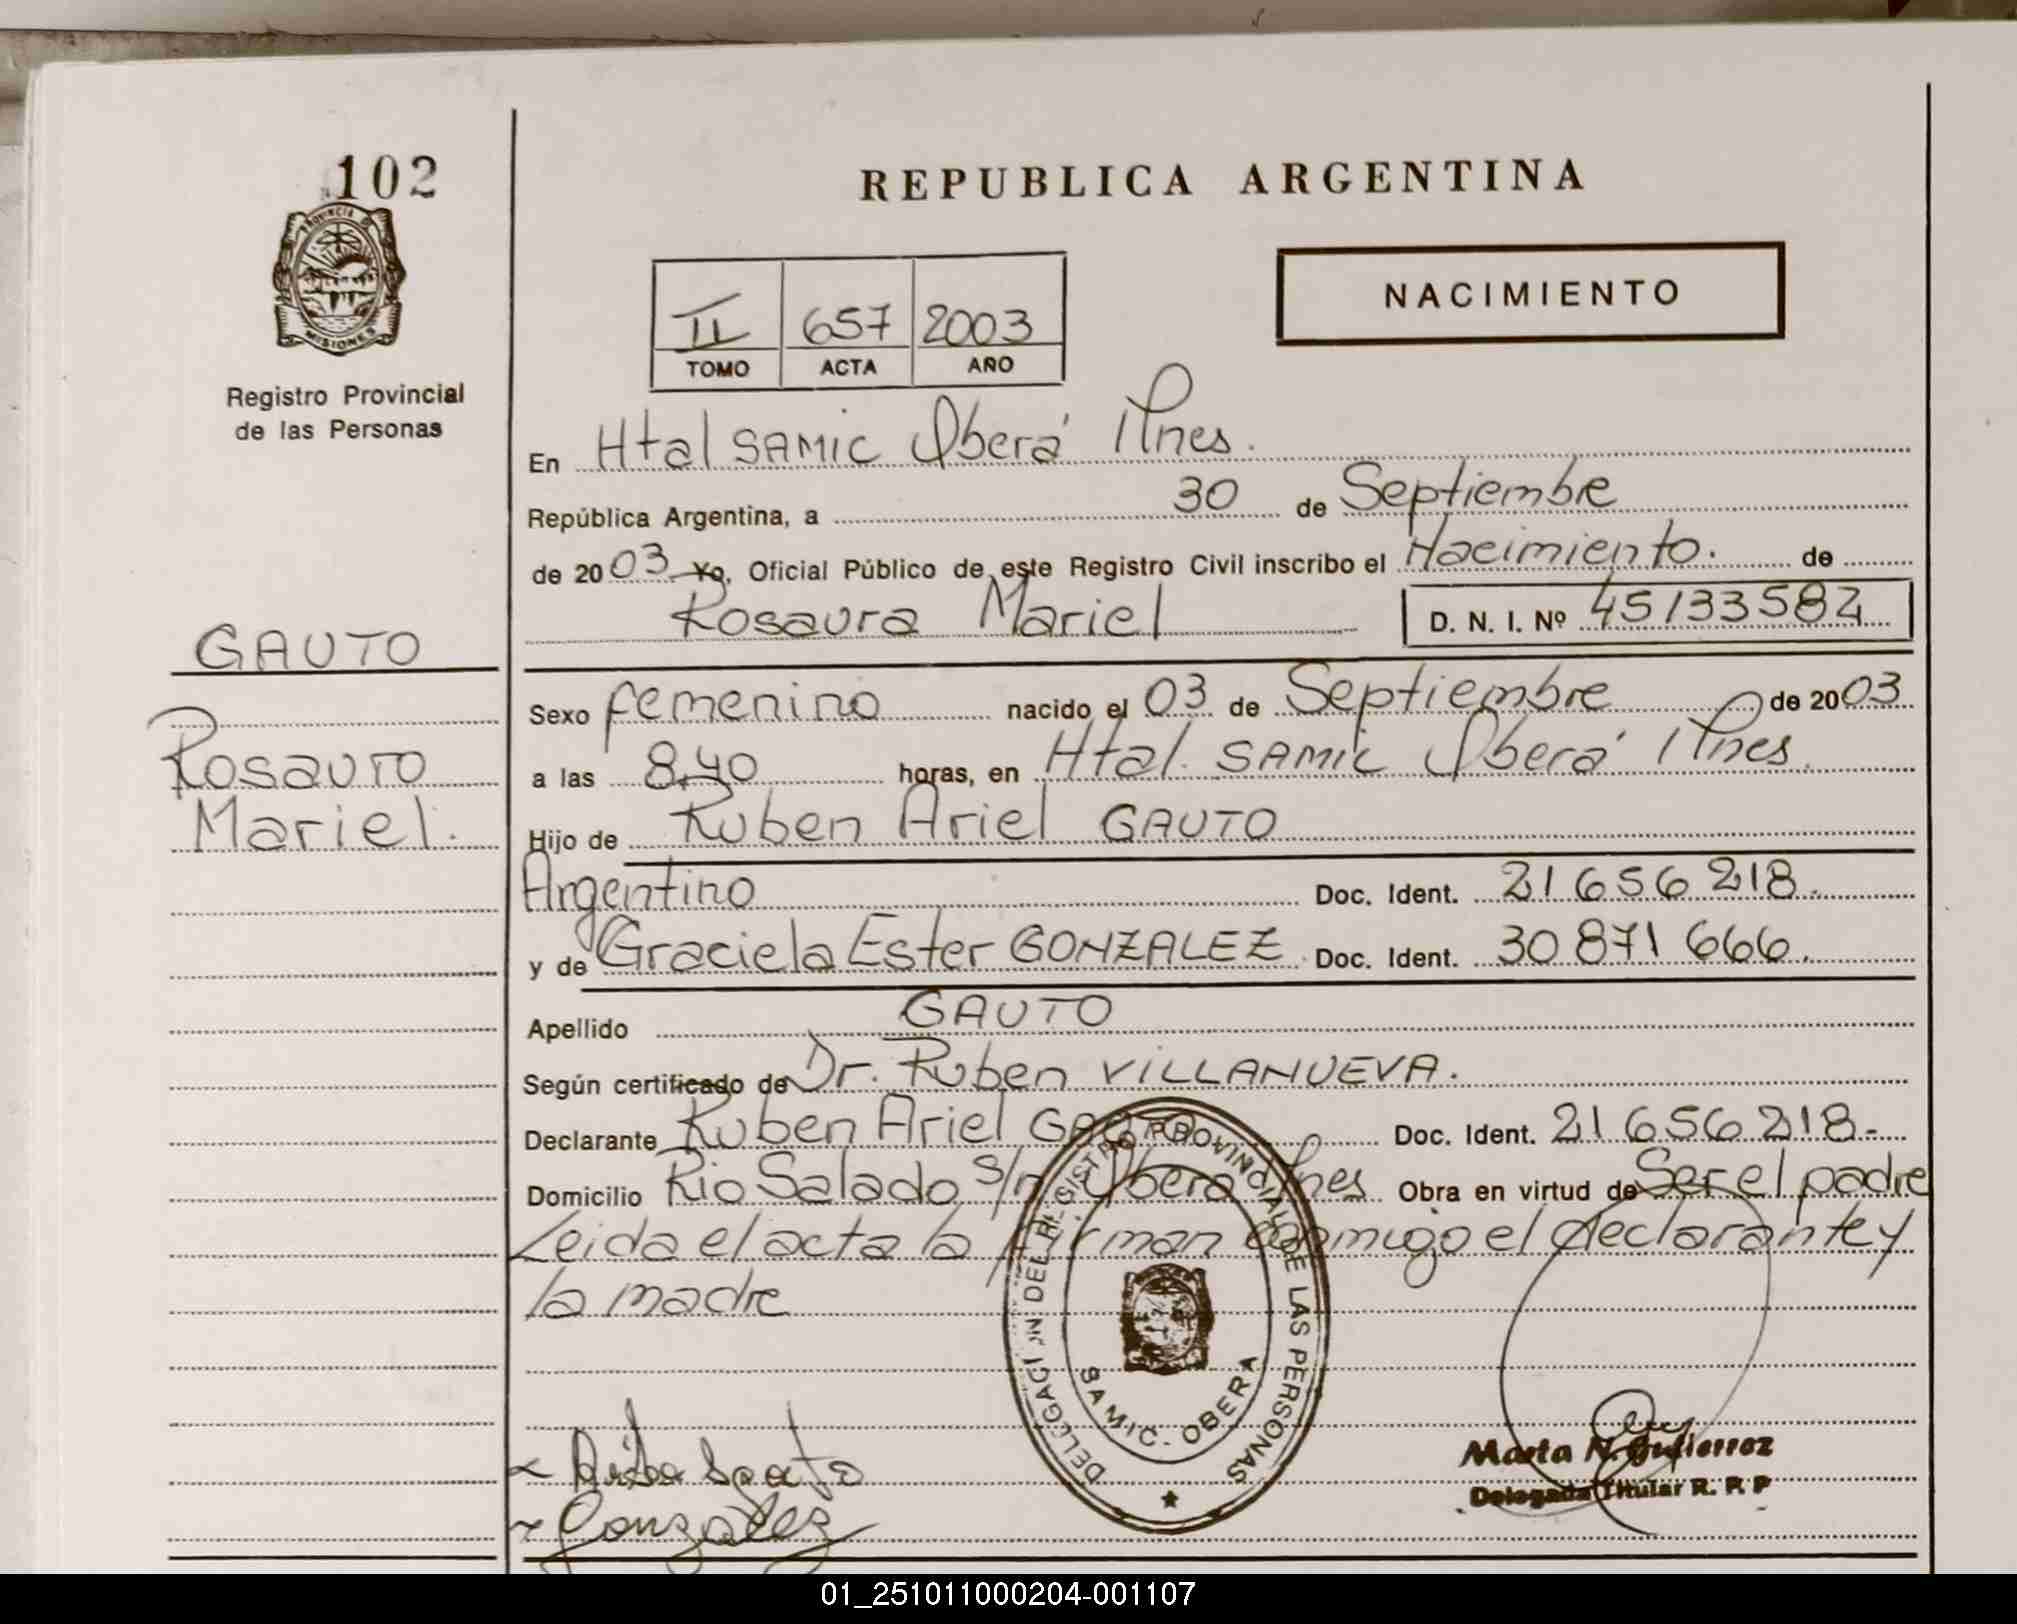 102
REPUBLICA ARGENTINA
PROVINCIA DE MISIONES
NACIMIENTO
II 657 2003
TOMO ACTA AÑO
Registro Provincial
de las Personas
En Htal SAMIC Oberá Mnes.
República Argentina, a 30 de Septiembre
de 2003 Yo, Oficial Público de este Registro Civil inscribo el Nacimiento. de
Rosaura Mariel D. N. I. Nº 45133582
GAUTO
Sexo femenino nacido el 03 de Septiembre de 2003
Rosaura
Mariel.
a las 8,40 horas, en Htal. SAMIC Oberá Mnes.
Hijo de Ruben Ariel GAUTO
Argentino Doc. Ident. 21656218.
y de Graciela Ester GONZALEZ Doc. Ident. 30871666.
Apellido GAUTO
Según certificado de Dr. Ruben VILLANUEVA.
Declarante Ruben Ariel GAUTO Doc. Ident. 21656218.-
Domicilio Rio Salado s/n Oberá Mnes Obra en virtud de Ser el padre
Leida el acta la firman conmigo el declarante y
la madre
DELEGACION DEL REGISTRO PROVINCIAL DE LAS PERSONAS
SAMIC. OBERA
Gonzalez
Marta N. Gutierrez
Delegada Titular R. P. P
01_251011000204-001107